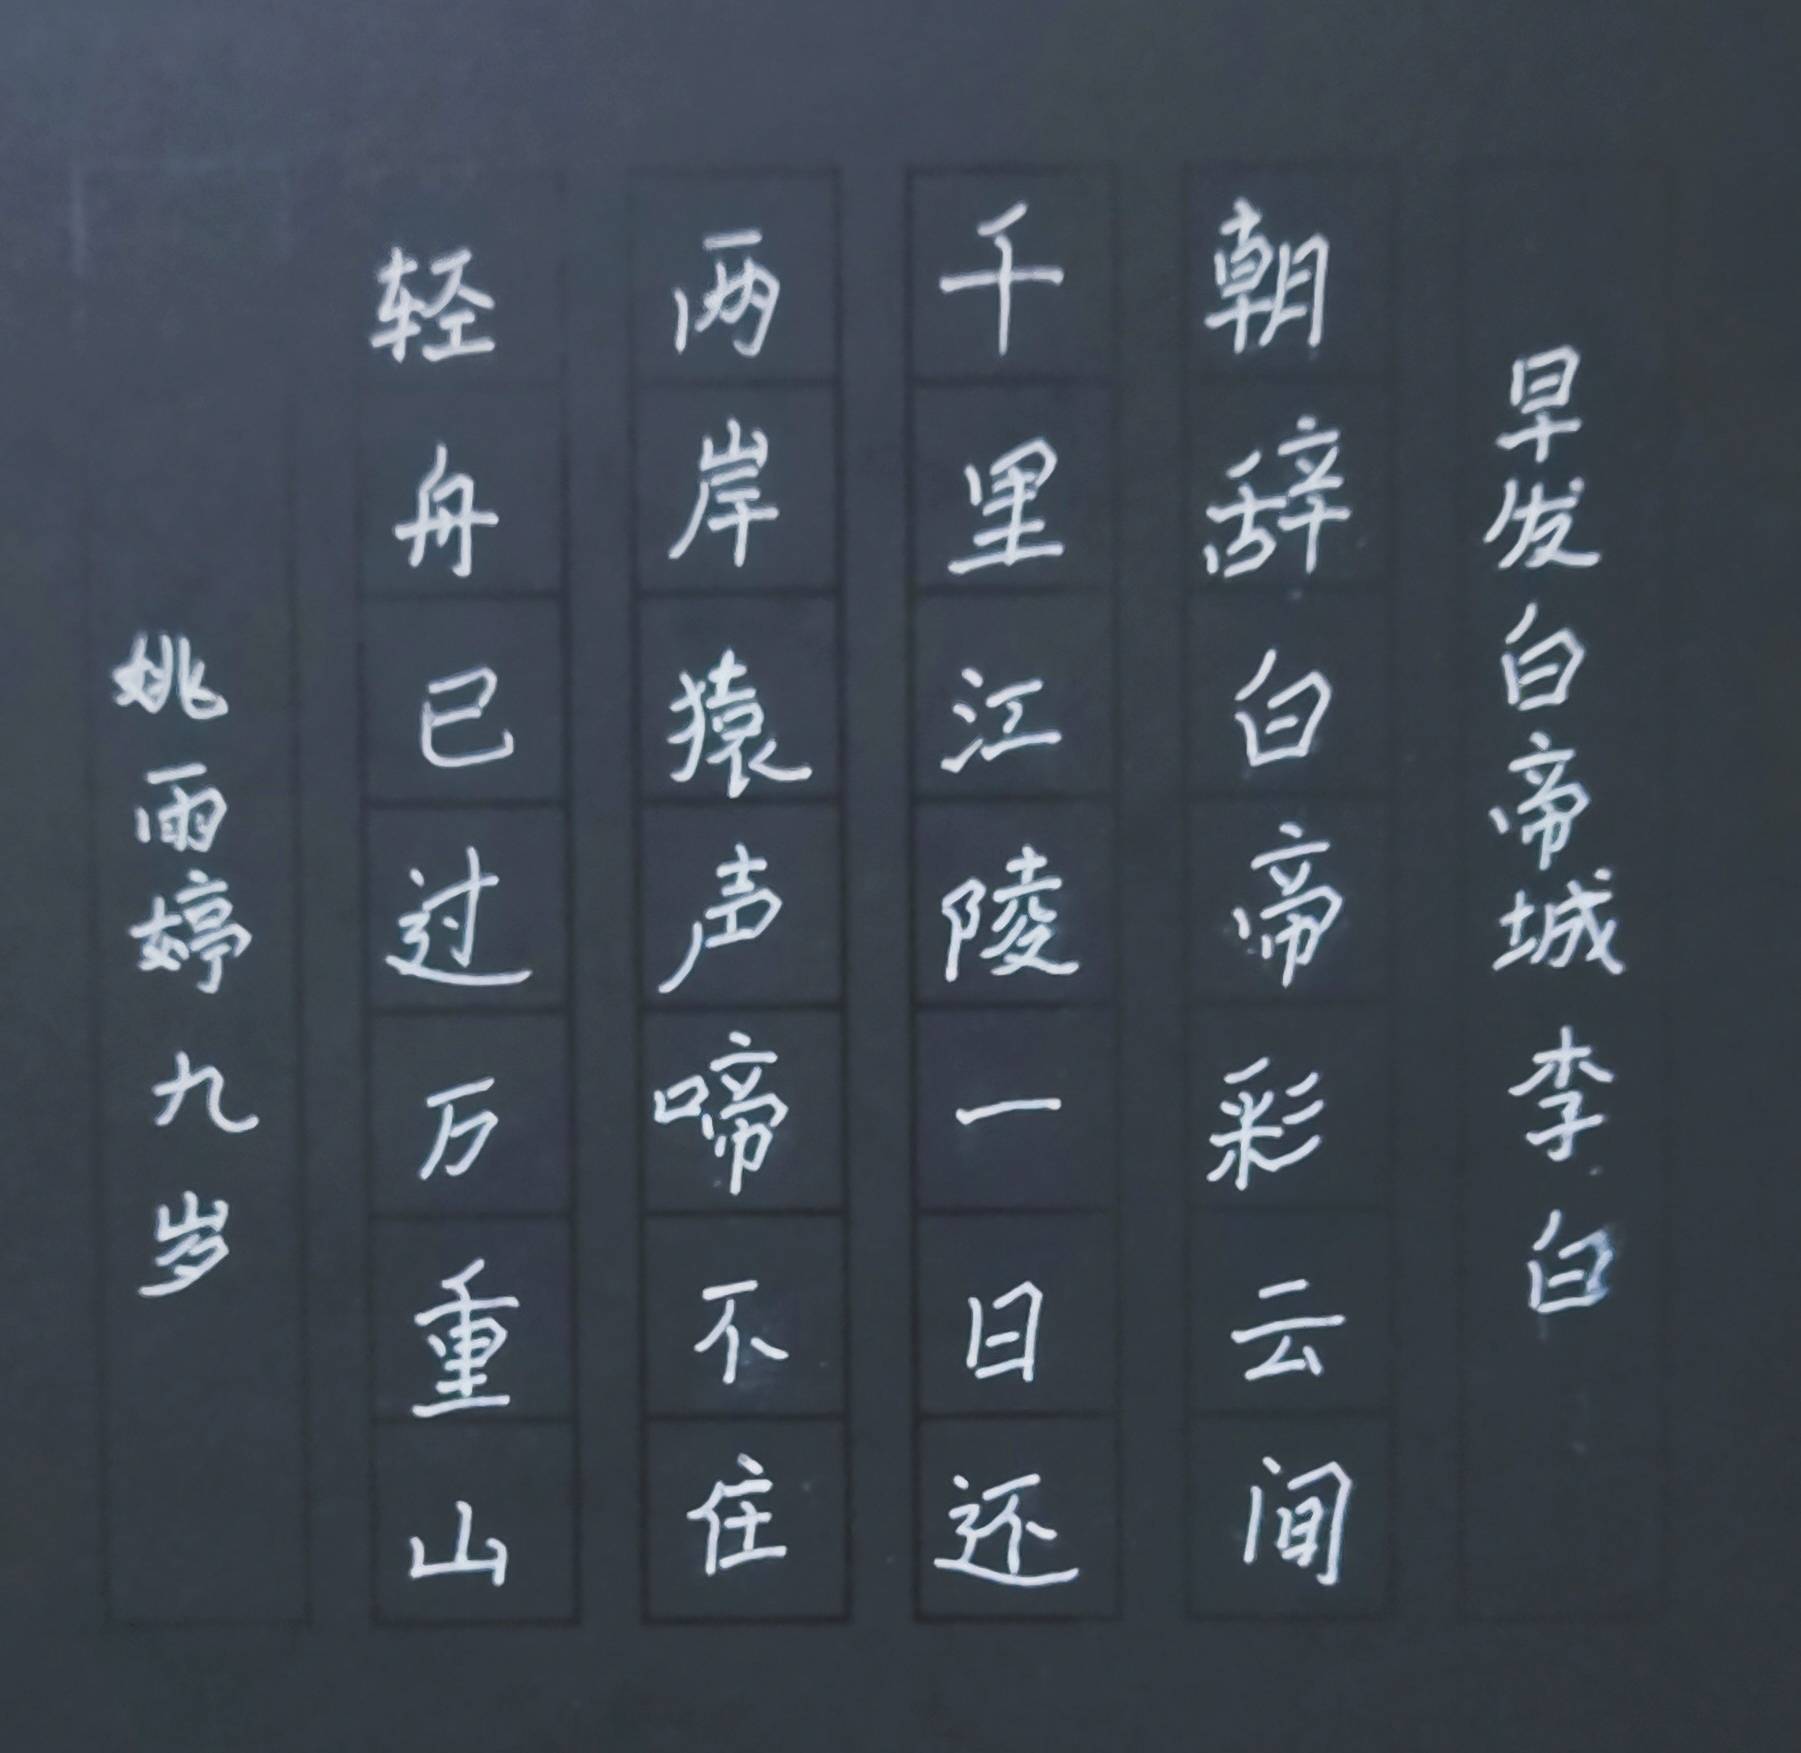 早发白帝城 李白
朝辞白帝彩云间
千里江陵一日还
两岸猿声啼不住
轻舟已过万重山
姚雨婷 九岁